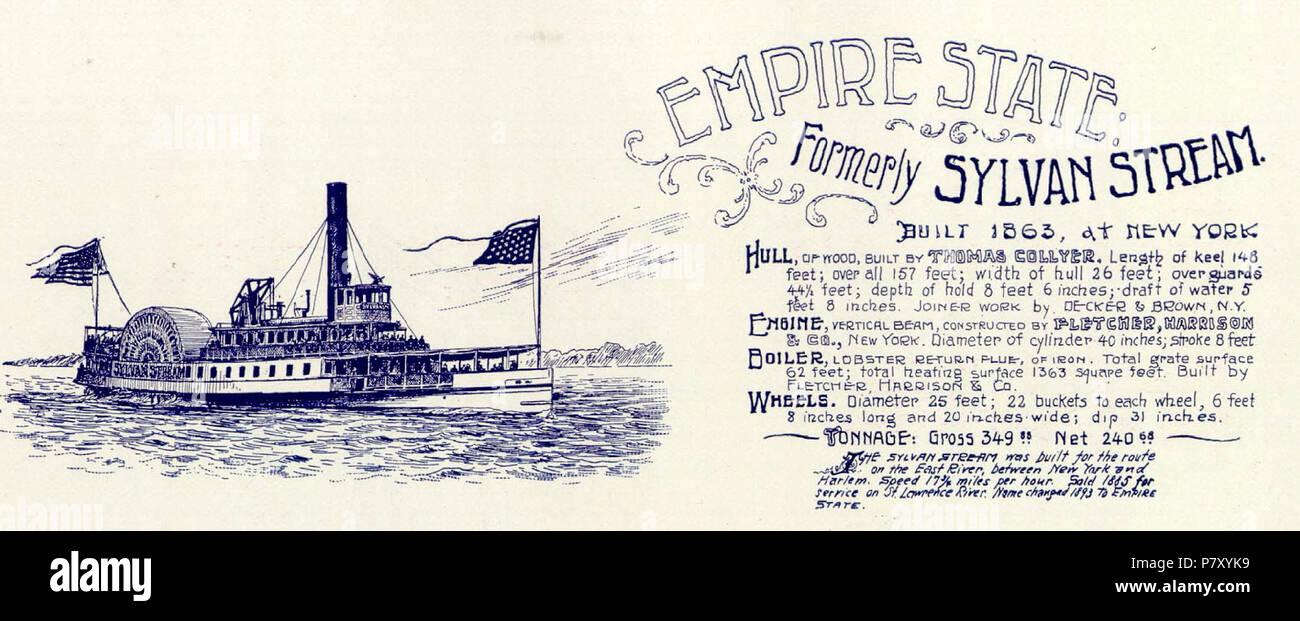 EMPIRE STATE:
Formerly SYLVAN STREAM.
BUILT 1863, at NEW YORK
HULL, OF WOOD, BUILT BY THOMAS COLLYER. Length of keel 148
feet; over all 157 feet; width of hull 26 feet; over guards
44½ feet; depth of hold 8 feet 6 inches; draft of water 5
feet 8 inches. JOINER WORK by DECKER & BROWN, N.Y.
ENGINE, VERTICAL BEAM, CONSTRUCTED BY FLETCHER, HARRISON
& CO., NEW YORK. Diameter of cylinder 40 inches; stroke 8 feet
BOILER, LOBSTER RETURN FLUE, OF IRON. Total grate surface
62 feet; total heating surface 1363 square feet. Built by
FLETCHER, HARRISON & Co.
WHEELS. Diameter 25 feet; 22 buckets to each wheel, 6 feet
8 inches long and 20 inches wide; dip 31 inches.
TONNAGE: Gross 349 Net 240
THE SYLVAN STREAM was built for the route
on the East River, between New York and
Harlem. Speed miles per hour. Sold 1885 for
service on St. Lawrence River. Name changed 1893 To EMPIRE
STATE.
SYLVAN STREAM
alamy
alamy
alamy
alamy
alamy
alamy
a
a
alamy
Image ID: P7XYK9
www.alamy.com